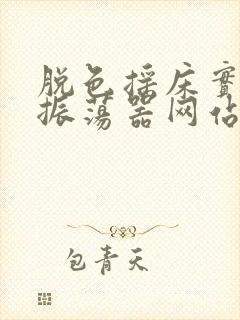 脱色摇床实
振荡器网站
包青天